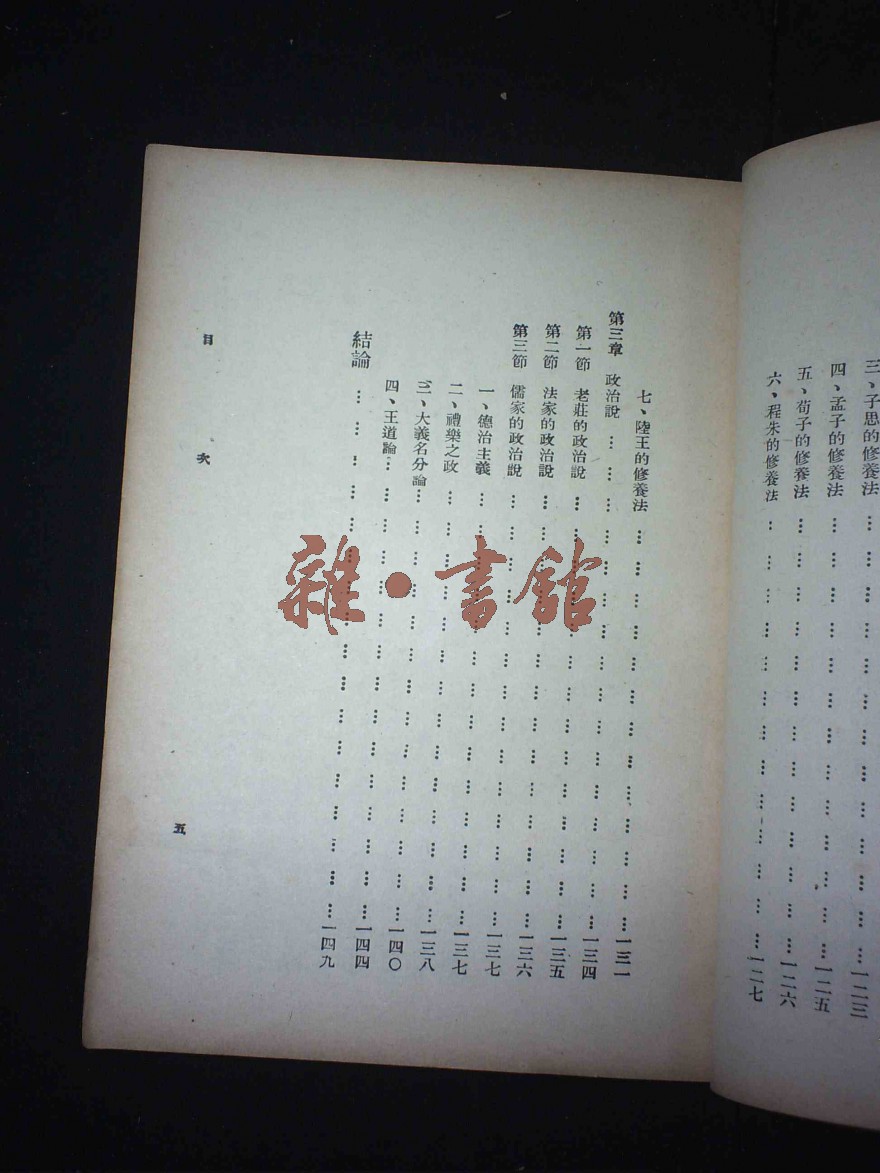 三、子思的修養法……………………一二三
四、孟子的修養法……………………一二五
五、荀子的修養法……………………一二六
六、程朱的修養法……………………一二七
七、陸王的修養法……………………一三一
第三章 政治說……………………一三四
第一節 老莊的政治說……………………一三五
第二節 法家的政治說……………………一三六
第三節 儒家的政治說……………………一三七
一、德治主義……………………一三七
二、禮樂之政……………………一三八
三、大義名分論……………………一四〇
四、王道論……………………一四四
結論……………………一四九
目次
五
雜·書館